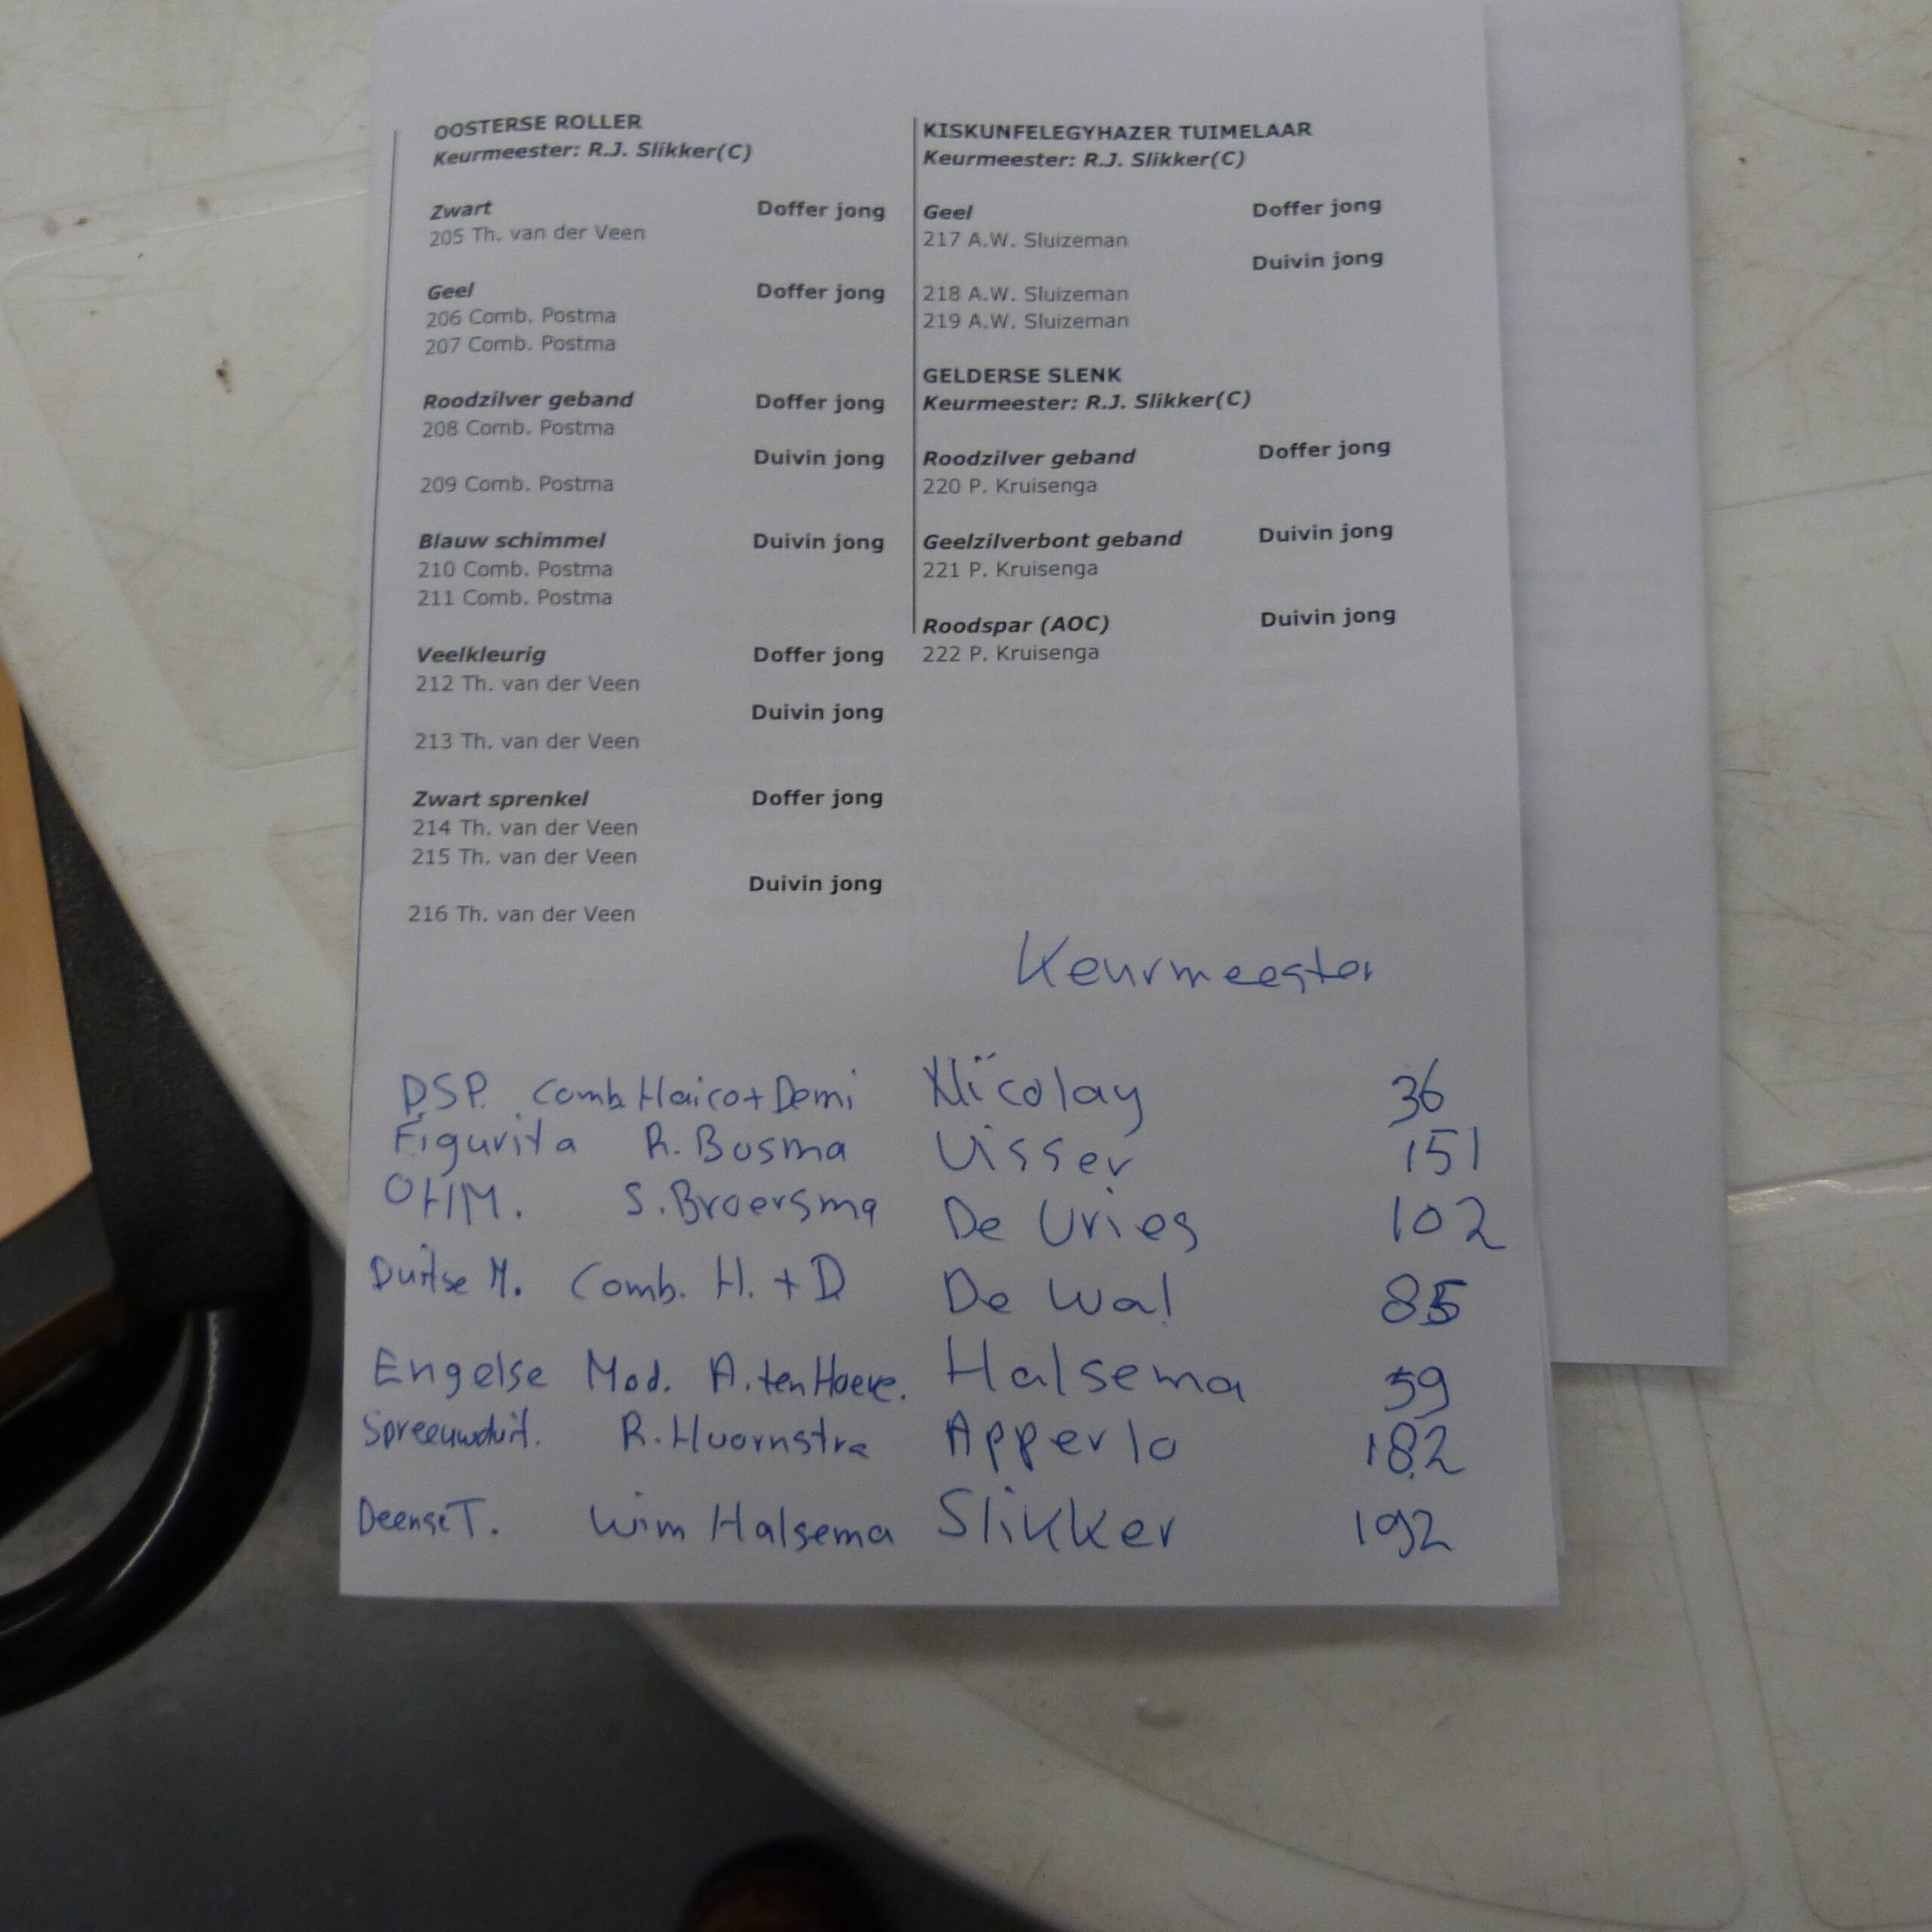 OOSTERSE ROLLER
Keurmeester: R.J. Slikker(C)
Zwart Doffer jong
205 Th. van der Veen
Geel Doffer jong
206 Comb. Postma
207 Comb. Postma
Roodzilver geband Doffer jong
208 Comb. Postma
Duivin jong
209 Comb. Postma
Blauw schimmel Duivin jong
210 Comb. Postma
211 Comb. Postma
Veelkleurig Doffer jong
212 Th. van der Veen
Duivin jong
213 Th. van der Veen
Zwart sprenkel Doffer jong
214 Th. van der Veen
215 Th. van der Veen
Duivin jong
216 Th. van der Veen
KISKUNFELEGYHAZER TUIMELAAR
Keurmeester: R.J. Slikker(C)
Geel Doffer jong
217 A.W. Sluizeman
Duivin jong
218 A.W. Sluizeman
219 A.W. Sluizeman
GELDERSE SLENK
Keurmeester: R.J. Slikker(C)
Roodzilver geband Doffer jong
220 P. Kruisenga
Geelzilverbont geband Duivin jong
221 P. Kruisenga
Roodspar (AOC) Duivin jong
222 P. Kruisenga
Keurmeester
D.S.P. Comb Haico + Demi Nicolay 36
Figurita R. Bosma Visser 151
OHM. S. Broersma De Vries 102
Duitse M. Comb. H. + D De Wal 85
Engelse Mod. A. ten Hoeve. Halsema 59
Spreeuwduif. R. Huornstra Apperlo 182
Deense T. Wim Halsema Slikker 192